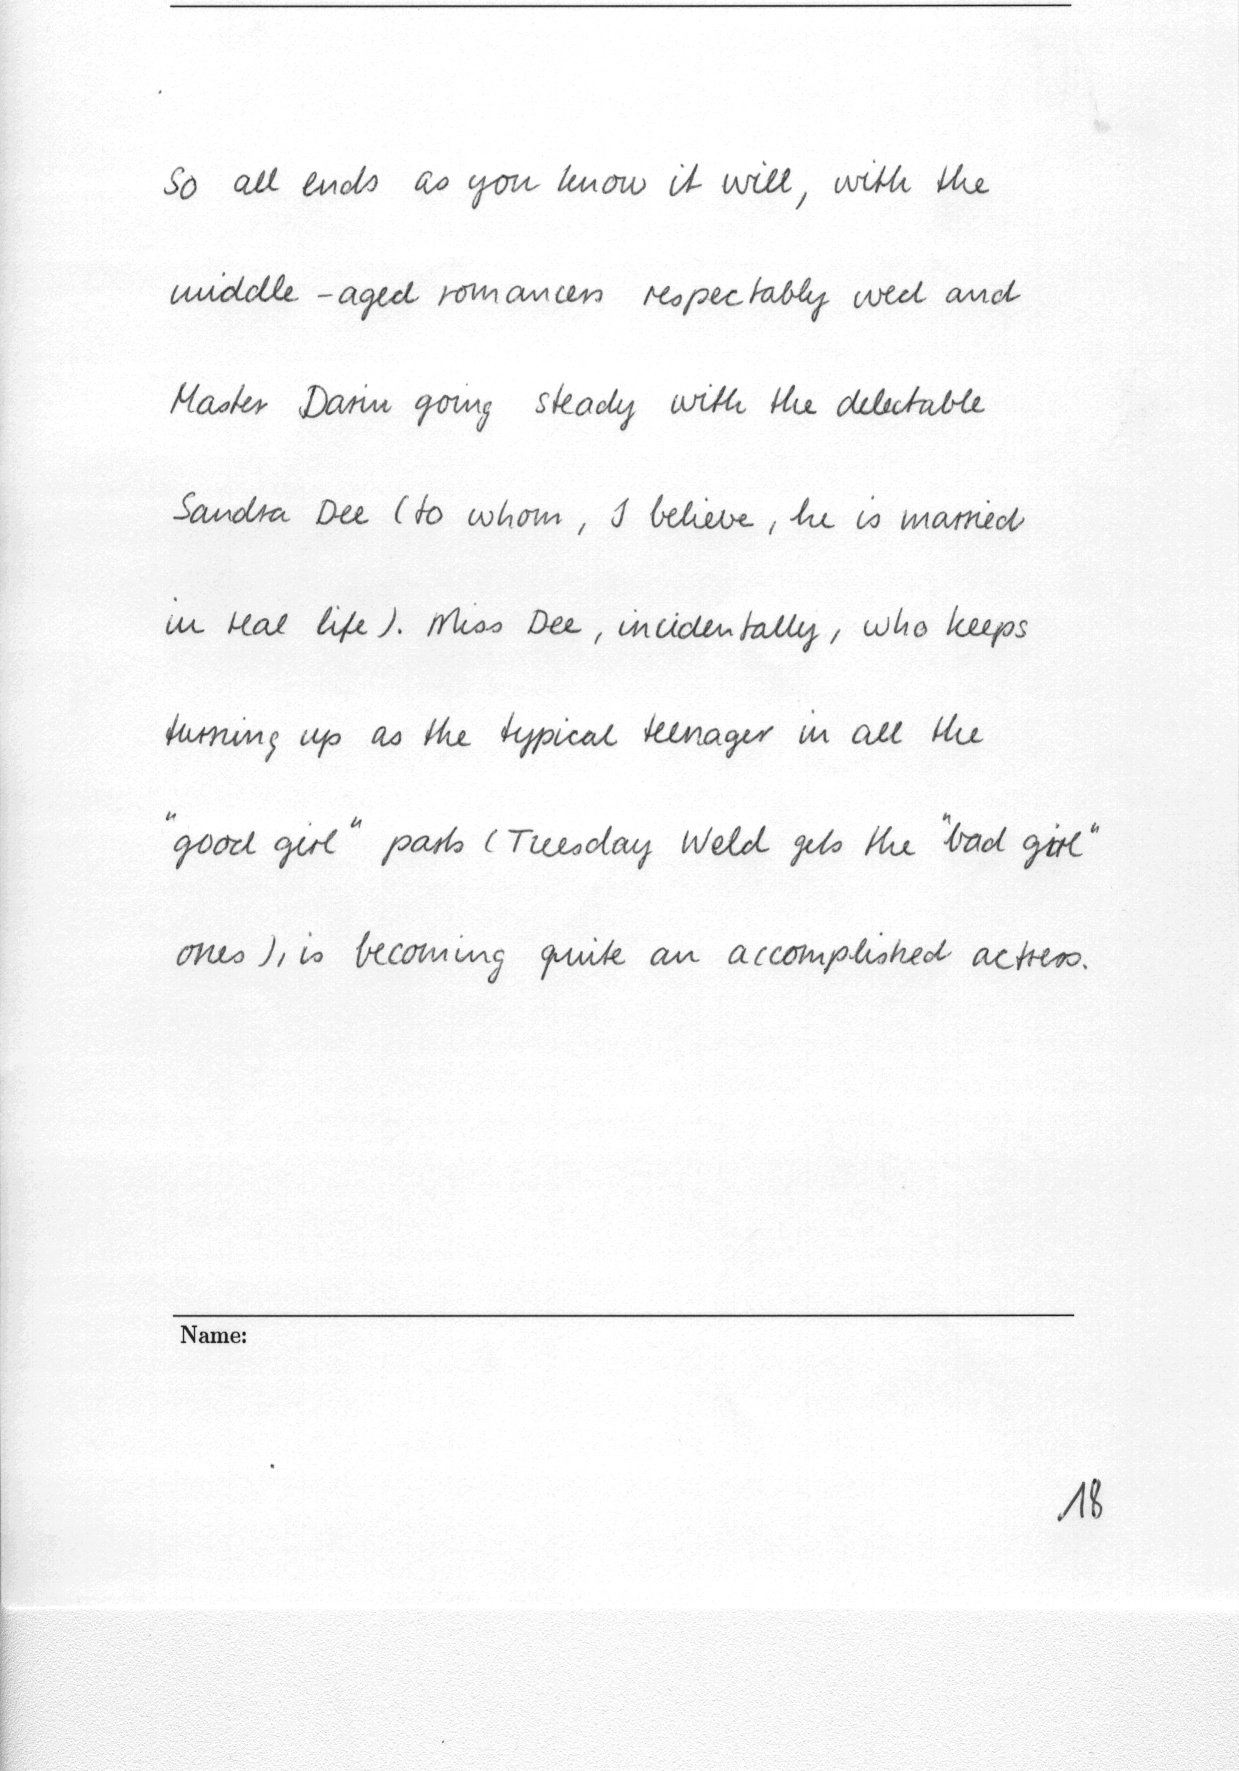 So all ends as you know it will, with the
middle-aged romancers respectably wed and
Master Darin going steady with the delectable
Sandra Dee (to whom, I believe, he is married
in real life). Miss Dee, incidentally, who keeps
turning up as the typical teenager in all the
"good girl" parts (Tuesday Weld gets the "bad girl"
ones), is becoming quite an accomplished actress.
Name:
18